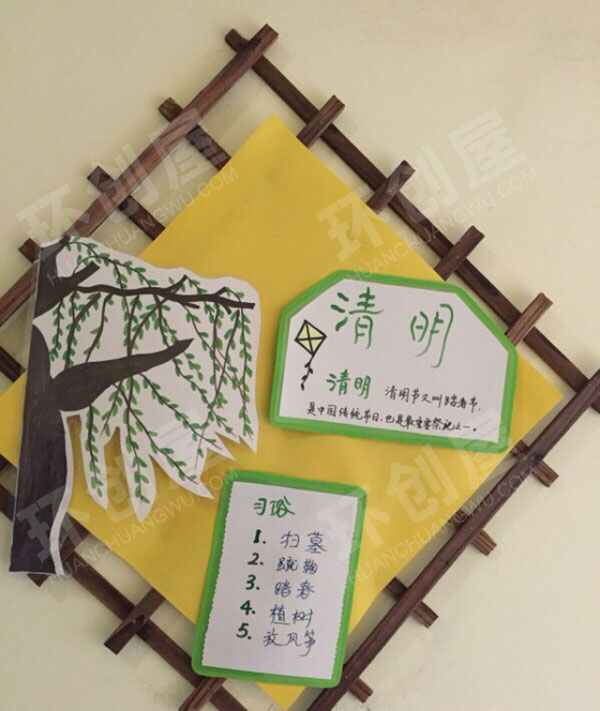 清明
清明 清明节又叫踏青节,
是中国传统节日,也是最重要祭祝之一。
习俗
1. 扫墓
2. 蹴鞠
3. 踏春
4. 植树
5. 放风筝
环创屋
HUANCHUANGWU.COM
环创屋
HUANCHUANGWU.COM
环创屋
HUANCHUANGWU.COM
环创屋
HUANCHUANGWU.COM